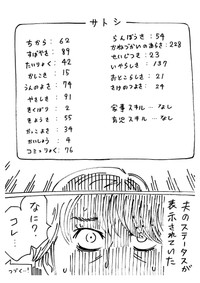 サトシ
ちから：62
すばやさ：89
たいりょく：42
かしこさ：15
うんのよさ：74
やさしさ：91
きくばり：2
きようさ：55
かっこよさ：36
かいしょう：4
コミュりょく：76
らんぼうさ：54
かねづかいのあらさ：228
せいけつさ：23
いやらしさ：137
おとこらしさ：21
さけのよわさ：24
家事スキル…なし
育児スキル…なし
夫のステータスが
表示されていた
なに？
コレ…
つづく…！